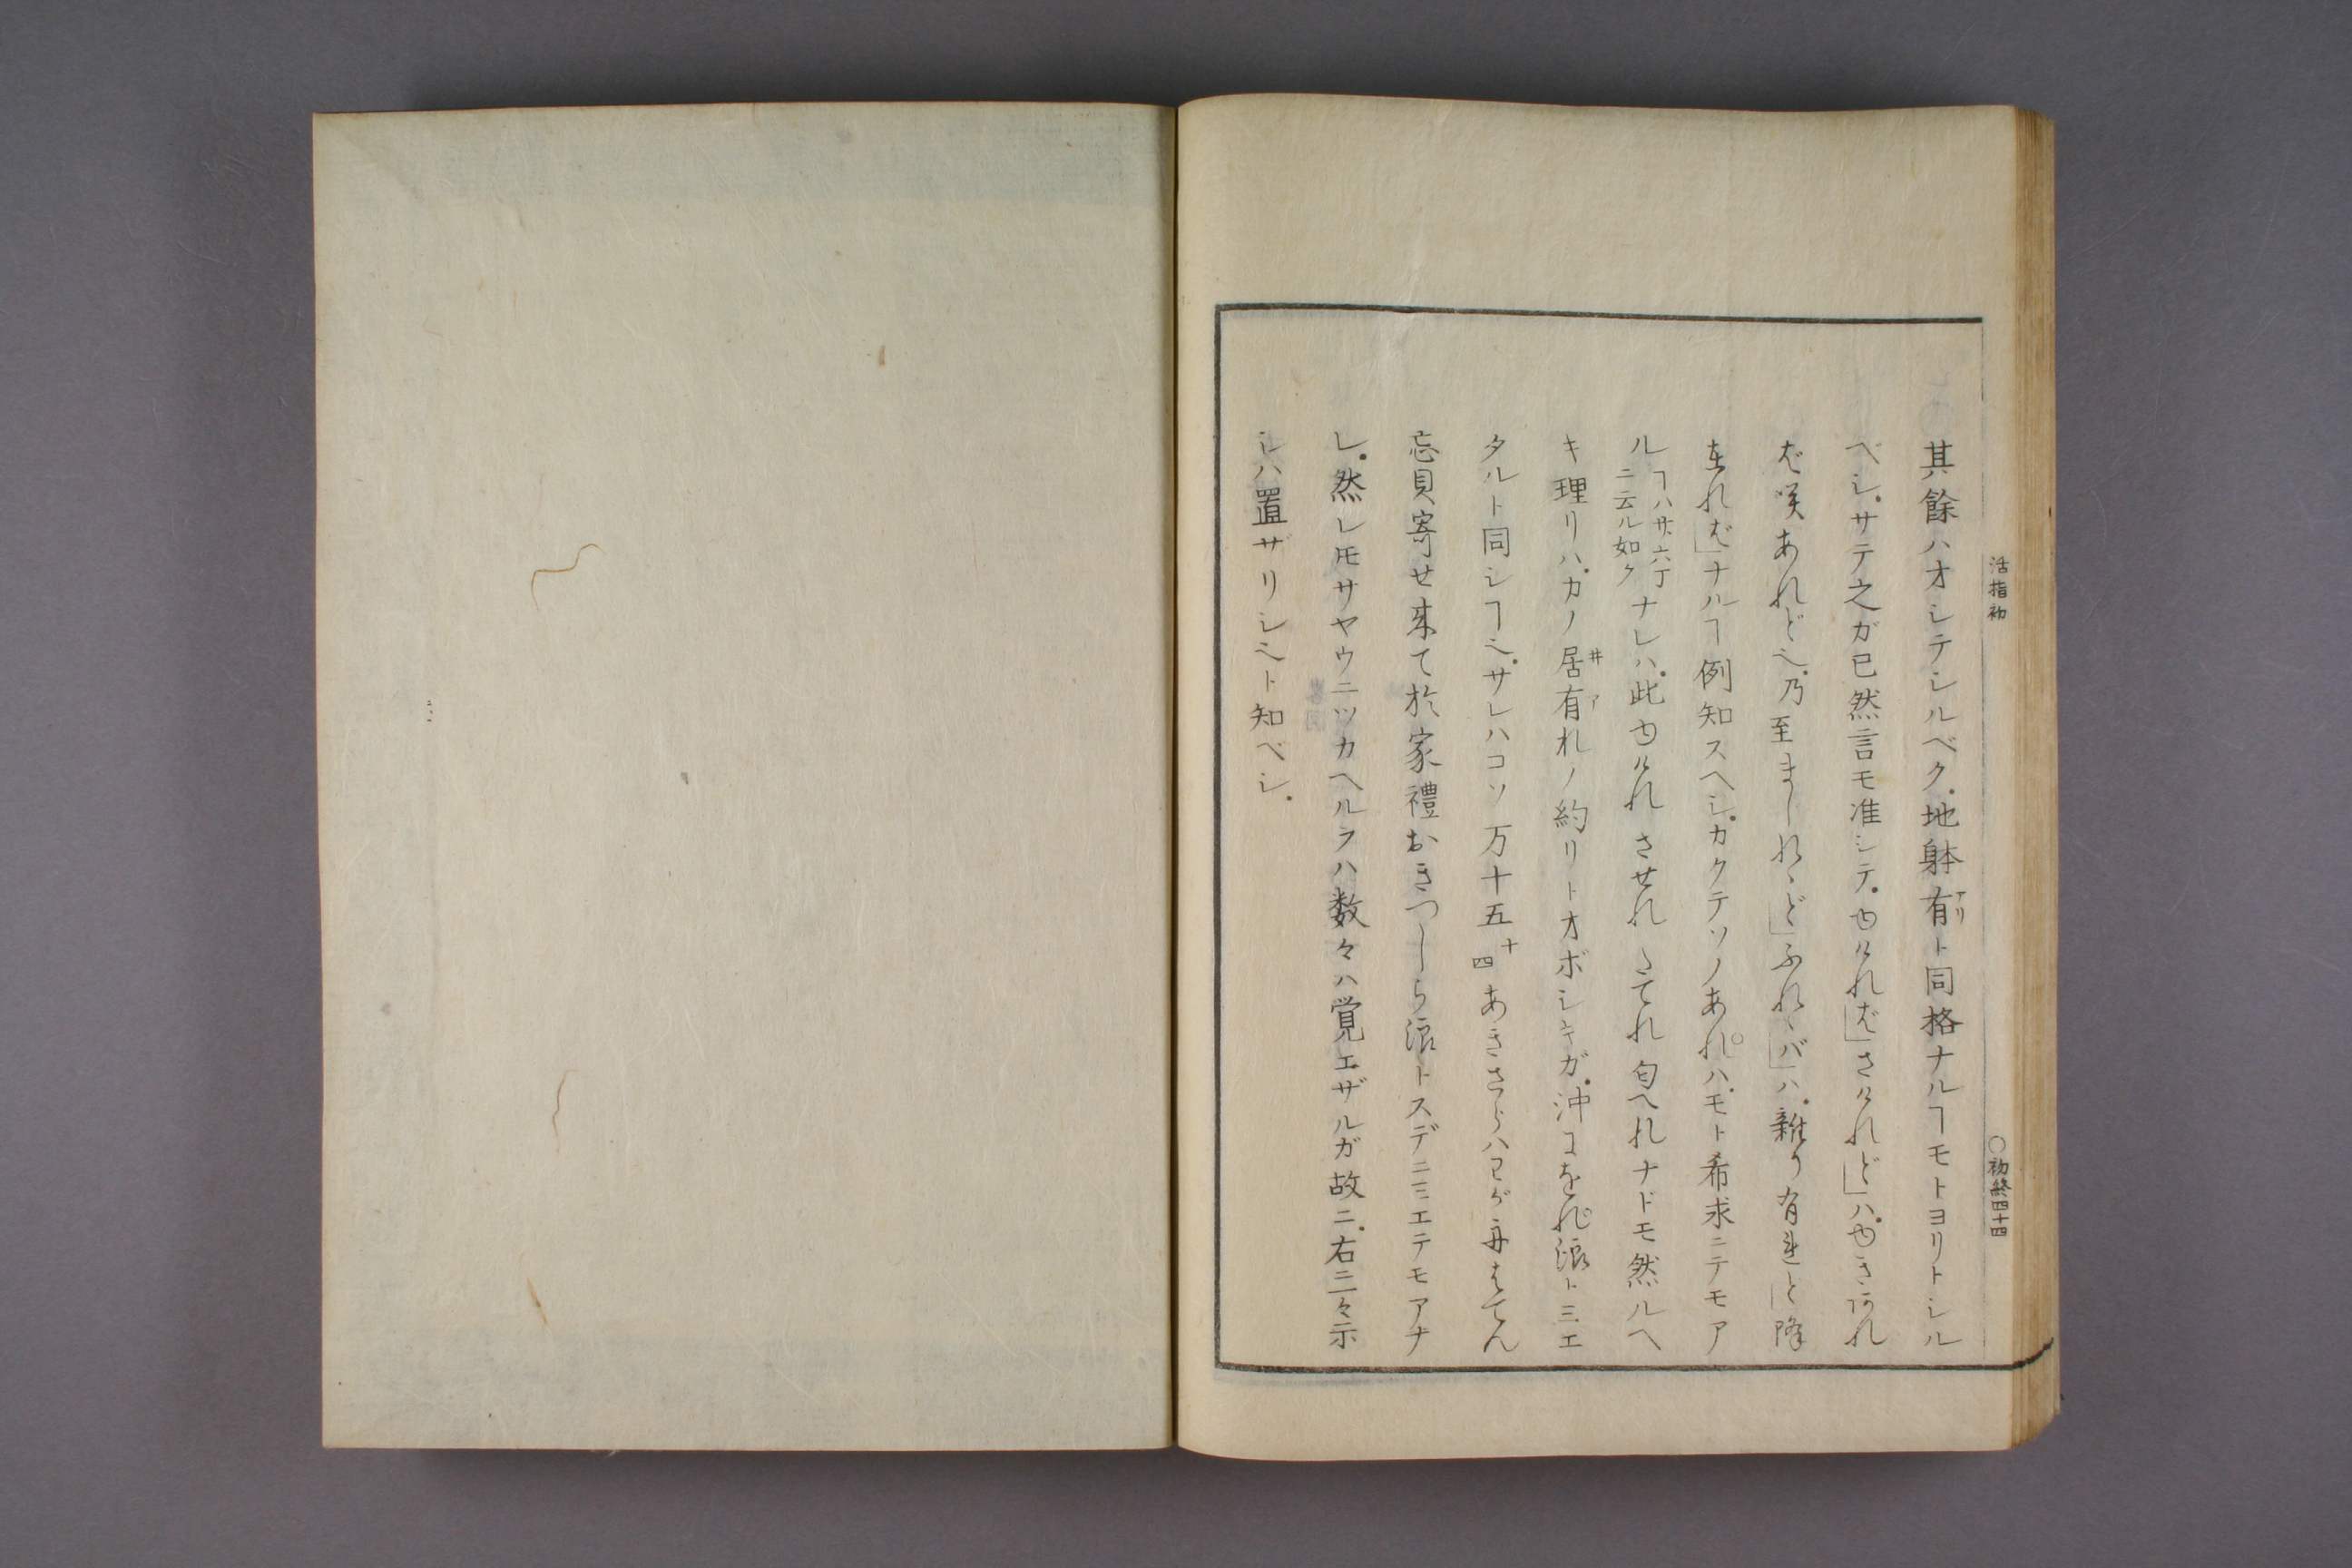 活指初
○初終四十四
其餘ハオシテシルベク.地躰有アリト同格ナルヿモトヨリトシル
ベシ.サテ之ガ已然言モ准シテ.ゆけれ
咲あれど也.乃至
例知スヘシ.カクテソノあれハ.モト希求ニテモア
ルヿハ廿六丁ニ云ル如クナレハ.此ゆけれ させれ たてれ 匂へれナドモ然ルヘ
キ理リハ.カノ居ヰ有アれノ約リトオボシキガ.沖にをれ浪トミエ
タルト同シヿ也.サレハコソ 万十五十四 あきさらハわが舟はてん
忘貝寄せ来て於家禮おきつしら浪トスデニミエテモアナ
レ.然レ𪜈サヤウニツカヘルヲハ数々ハ覚エザルガ故ニ.右ニ々示
シハ置ザリシ也ト知ベシ.